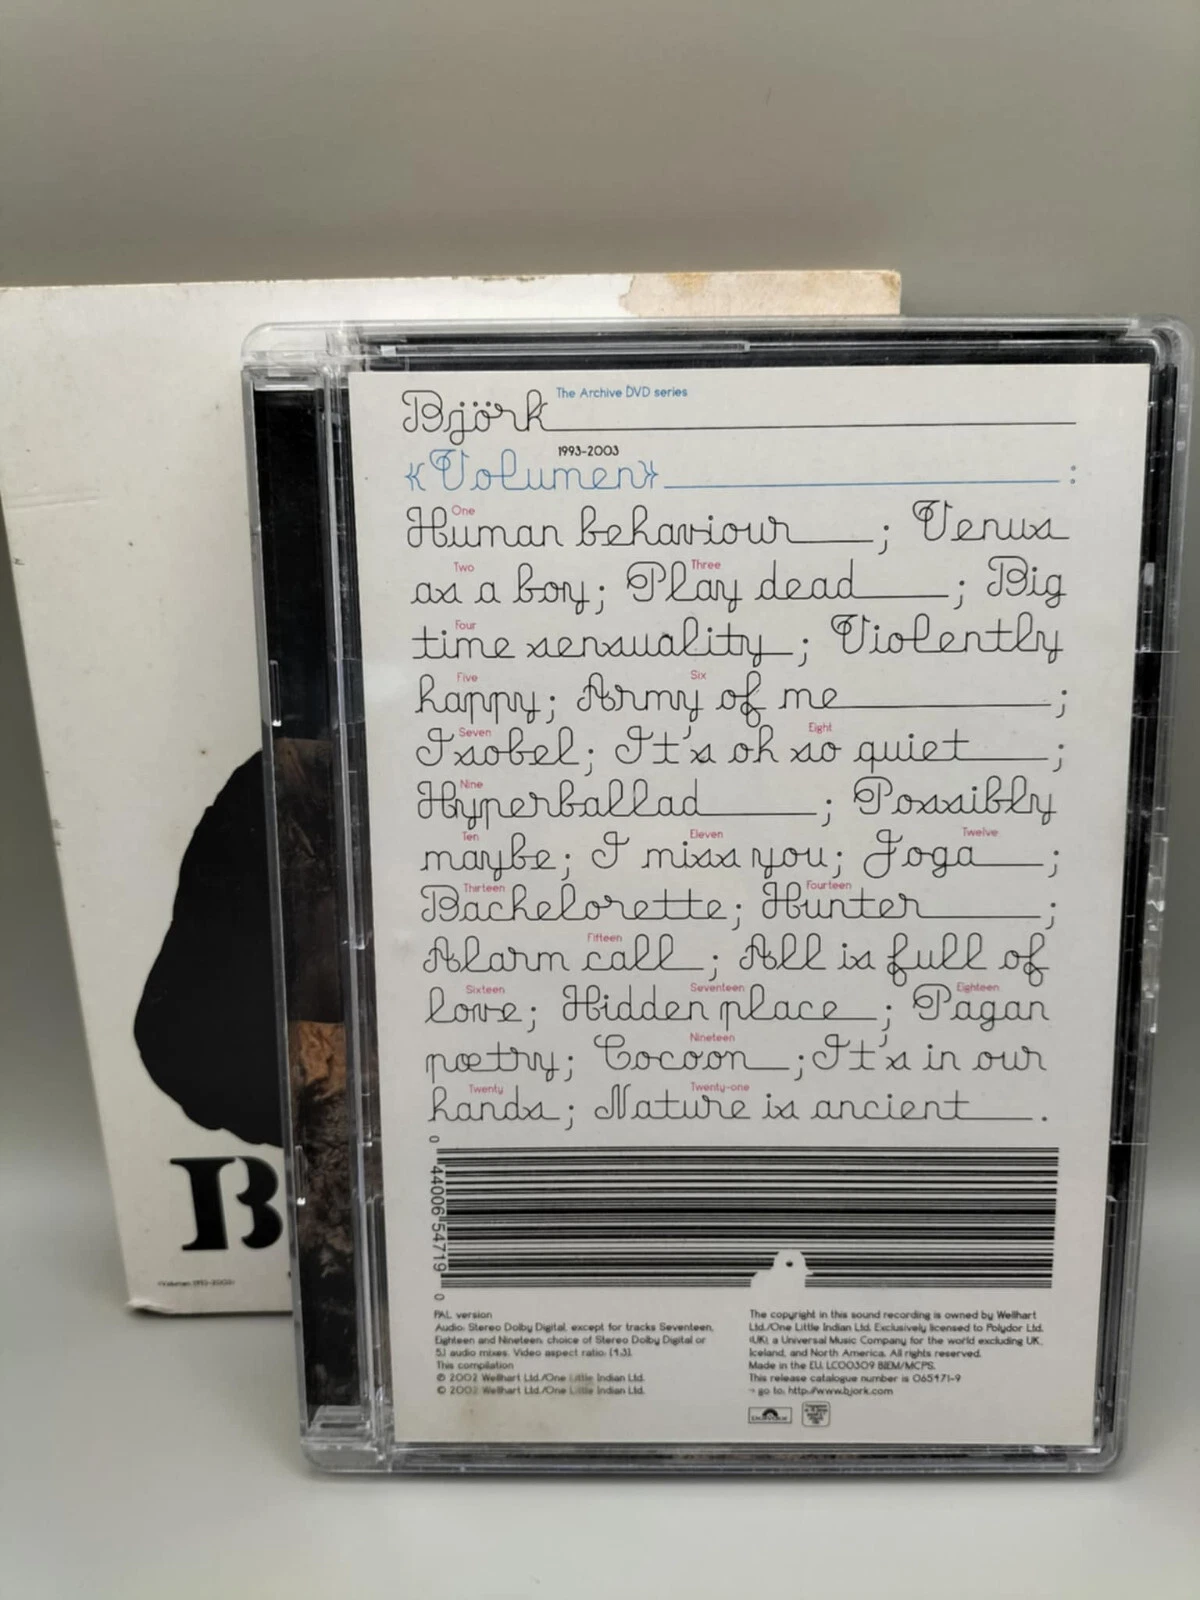 The Archive DVD series
Björk
1993-2003
«Volumen» :
One
Human behaviour ; Venus
Two Three
as a boy; Play dead ; Big
Four
time sensuality ; Violently
Five Six
happy; Army of me ;
Seven Eight
Isobel; It's oh so quiet ;
Nine
Hyperballad ; Possibly
Ten Eleven Twelve
maybe; I miss you; Joga ;
Thirteen Fourteen
Bachelorette; Hunter ;
Fifteen
Alarm call ; All is full of
Sixteen Seventeen Eighteen
love; Hidden place ; Pagan
Nineteen
poetry; Cocoon ; It's in our
Twenty Twenty-one
hands ; Nature is ancient .
0 44006 54719 0
PAL version
Audio: Stereo Dolby Digital, except for tracks Seventeen,
Eighteen and Nineteen: choice of Stereo Dolby Digital or
5.1 audio mixes. Video aspect ratio: (4:3).
This compilation
℗ 2002 Wellhart Ltd./One Little Indian Ltd.
© 2002 Wellhart Ltd./One Little Indian Ltd.
The copyright in this sound recording is owned by Wellhart
Ltd./One Little Indian Ltd. Exclusively licensed to Polydor Ltd.
(UK), a Universal Music Company for the world excluding UK,
Iceland, and North America. All rights reserved.
Made in the EU. LC00309 BIEM/MCPS.
This release catalogue number is 065471-9
→ go to: http://www.bjork.com
Polydor
B
«Volumen 1993-2003»